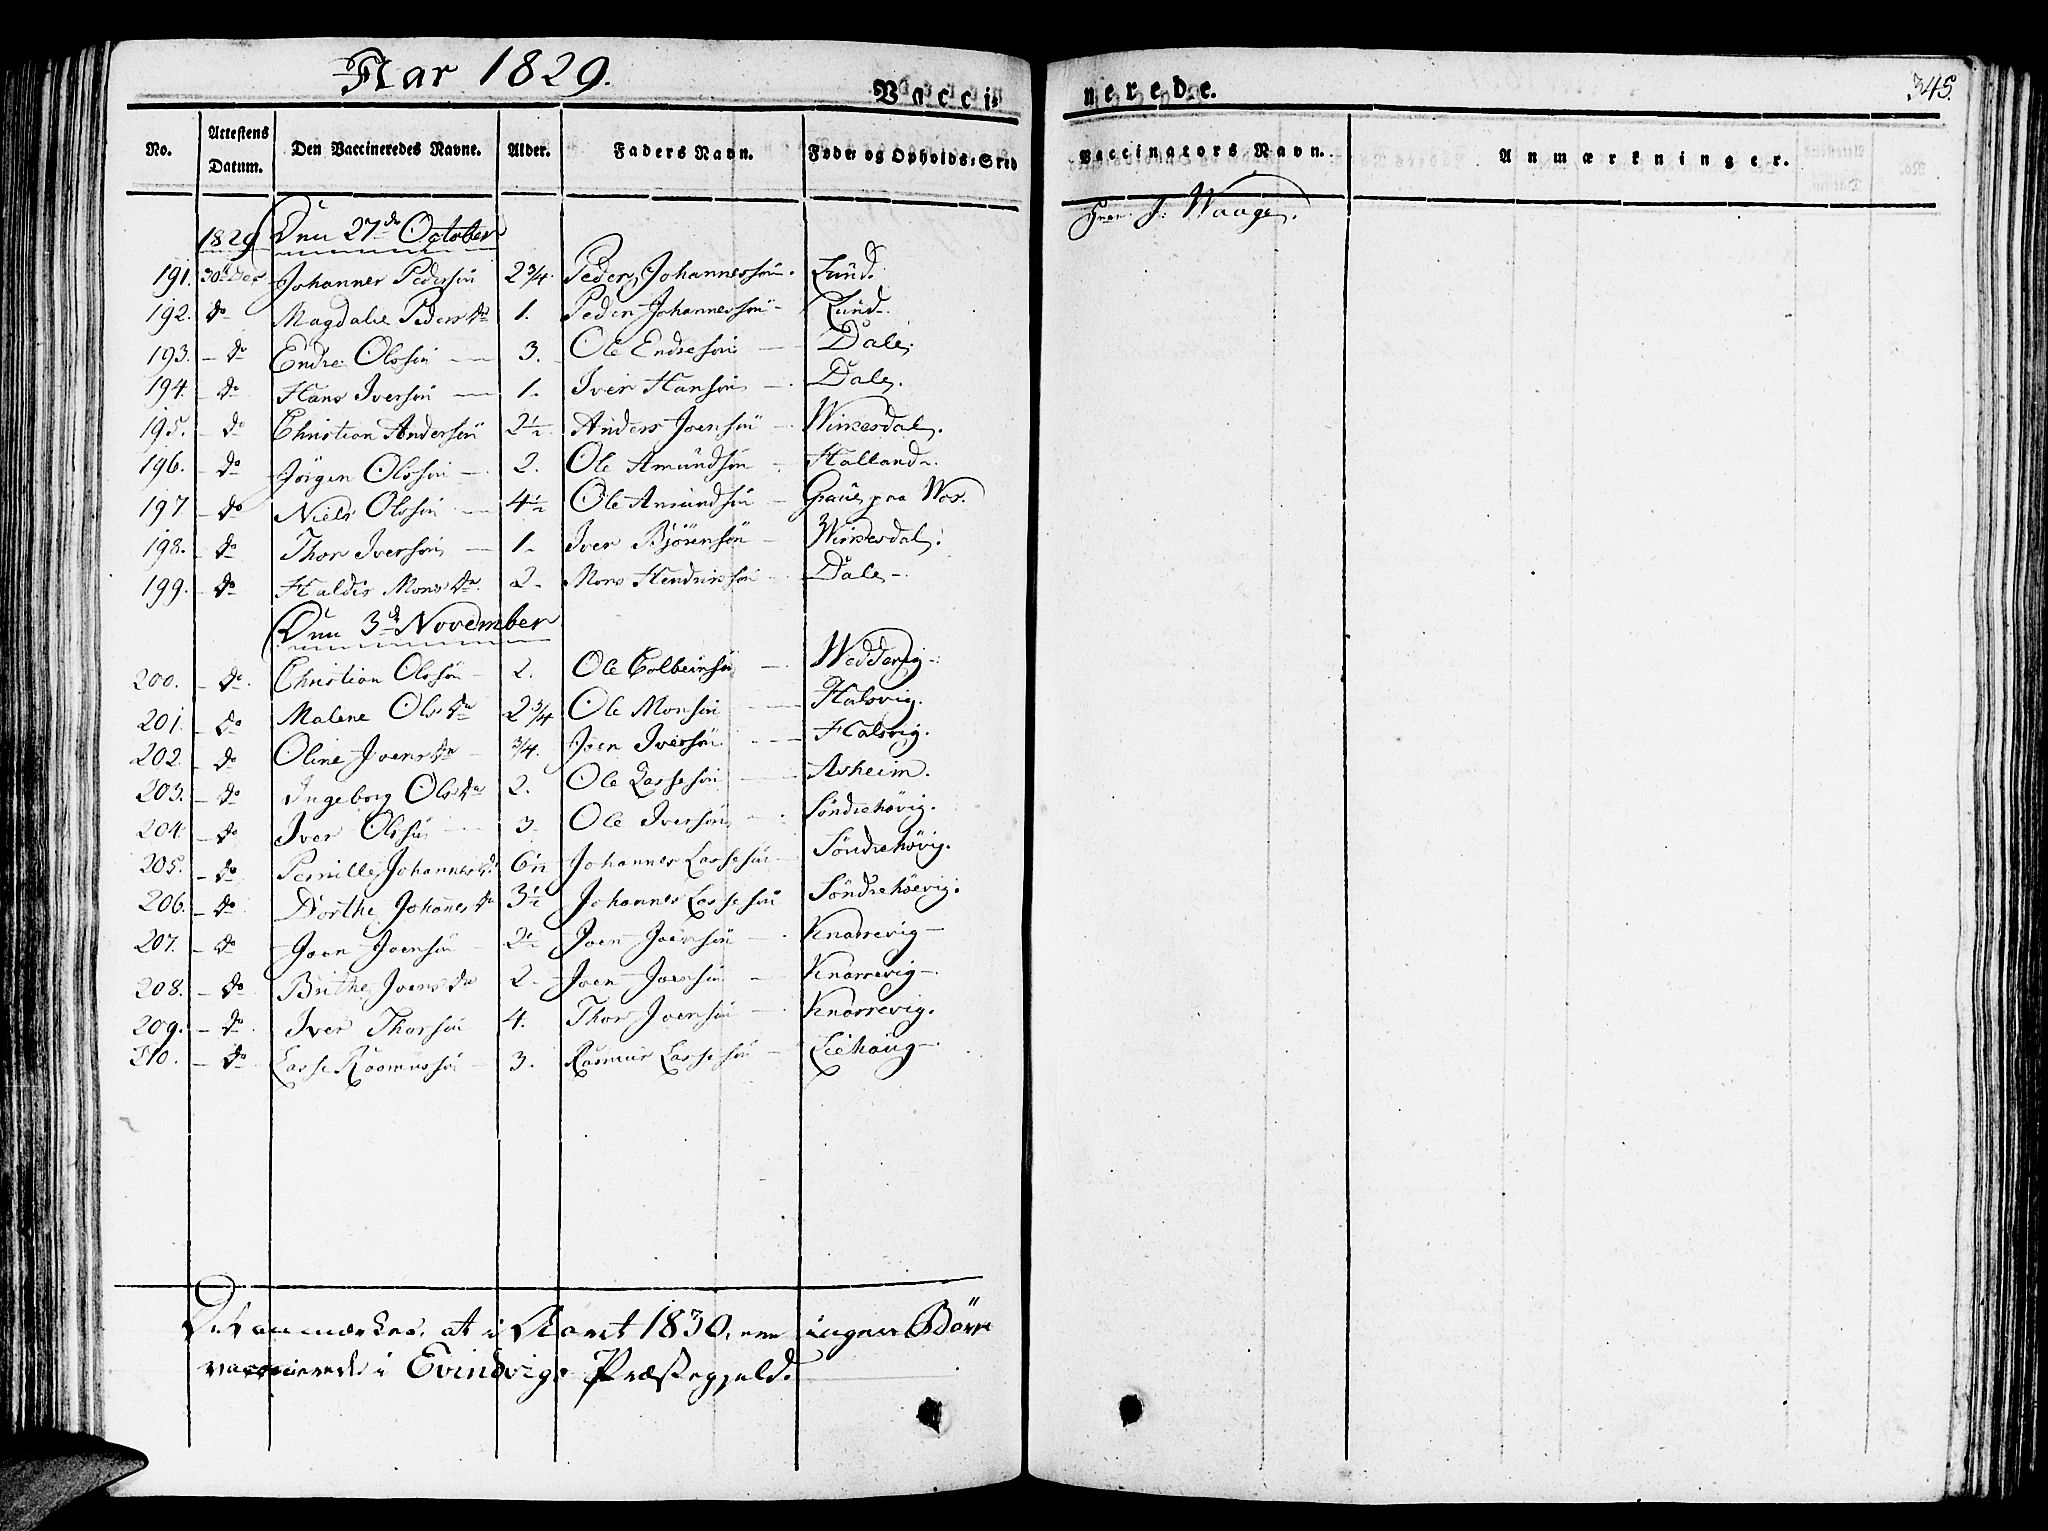 Aar 1829.
Vacci nerede. 345.
No. Attestens Datum. Den Vaccineredes Navne. Alder. Faders Navn. Føde og Opholds-Sted Vaccinators Navn. Anmærkninger.
1829 Den 27de October J: Waage.
191. 30te Dec Johannes Pedersön 2 3/4. Peder Johannessön. Lund.
192. do Magdale Pedersdr 1. Peder Johannessön Lund.
193. do Endre Olssön 3. Ole Endresön Dale.
194. do Hans Iversön 1. Iver Hansön Dale.
195. do Christian Andersön 2 1/2. Anders Joensön Wirkesdal.
196. do Jörgen Olssön 2. Ole Amundsön Halland.
197 do Niels Olssön 4 1/2 Ole Amundsön paa
198. do Thor Iversön 1. Iver Björensön Wirkesdal.
199. do Haldis Monsdr. 2. Mons Hendrichsön Dale.
Den 3de November
200. do. Christian Olssön 2. Ole Colbeinsön Weddervig.
201. do Malene Olsdr 2 3/4 Ole Monsön Halsvig.
202. do Oline Joensdr 3/4. Joen Iversön Halsvig.
203. do Ingeborg Olsdr 2. Ole Lassesön Asheim.
204. do Iver Olssön 3. Ole Iversön Söndrehövig.
205. do Pernille Johannesd. 6 1/2 Johannes Lassesön Söndrehövig.
206. do Dorthe Johannesdr 3 1/2 Johannes Lassesön Söndrehöevig.
207. do Joen Joensön 2 1/2 Joen Joensön Knarrevig
208. do Brithe Joensdr 2. Joen Joensön Knarrevig.
209. do Iver Thorsön 4. Thor Joensön Knarrevig.
210. do Lasse Rasmussön 3. Rasmus Lassesön Liehaug.
Det anmærkes, at i Aaret 1830, ere ingen Börn
vaccinerede i Evindvigs Præstegjeld.